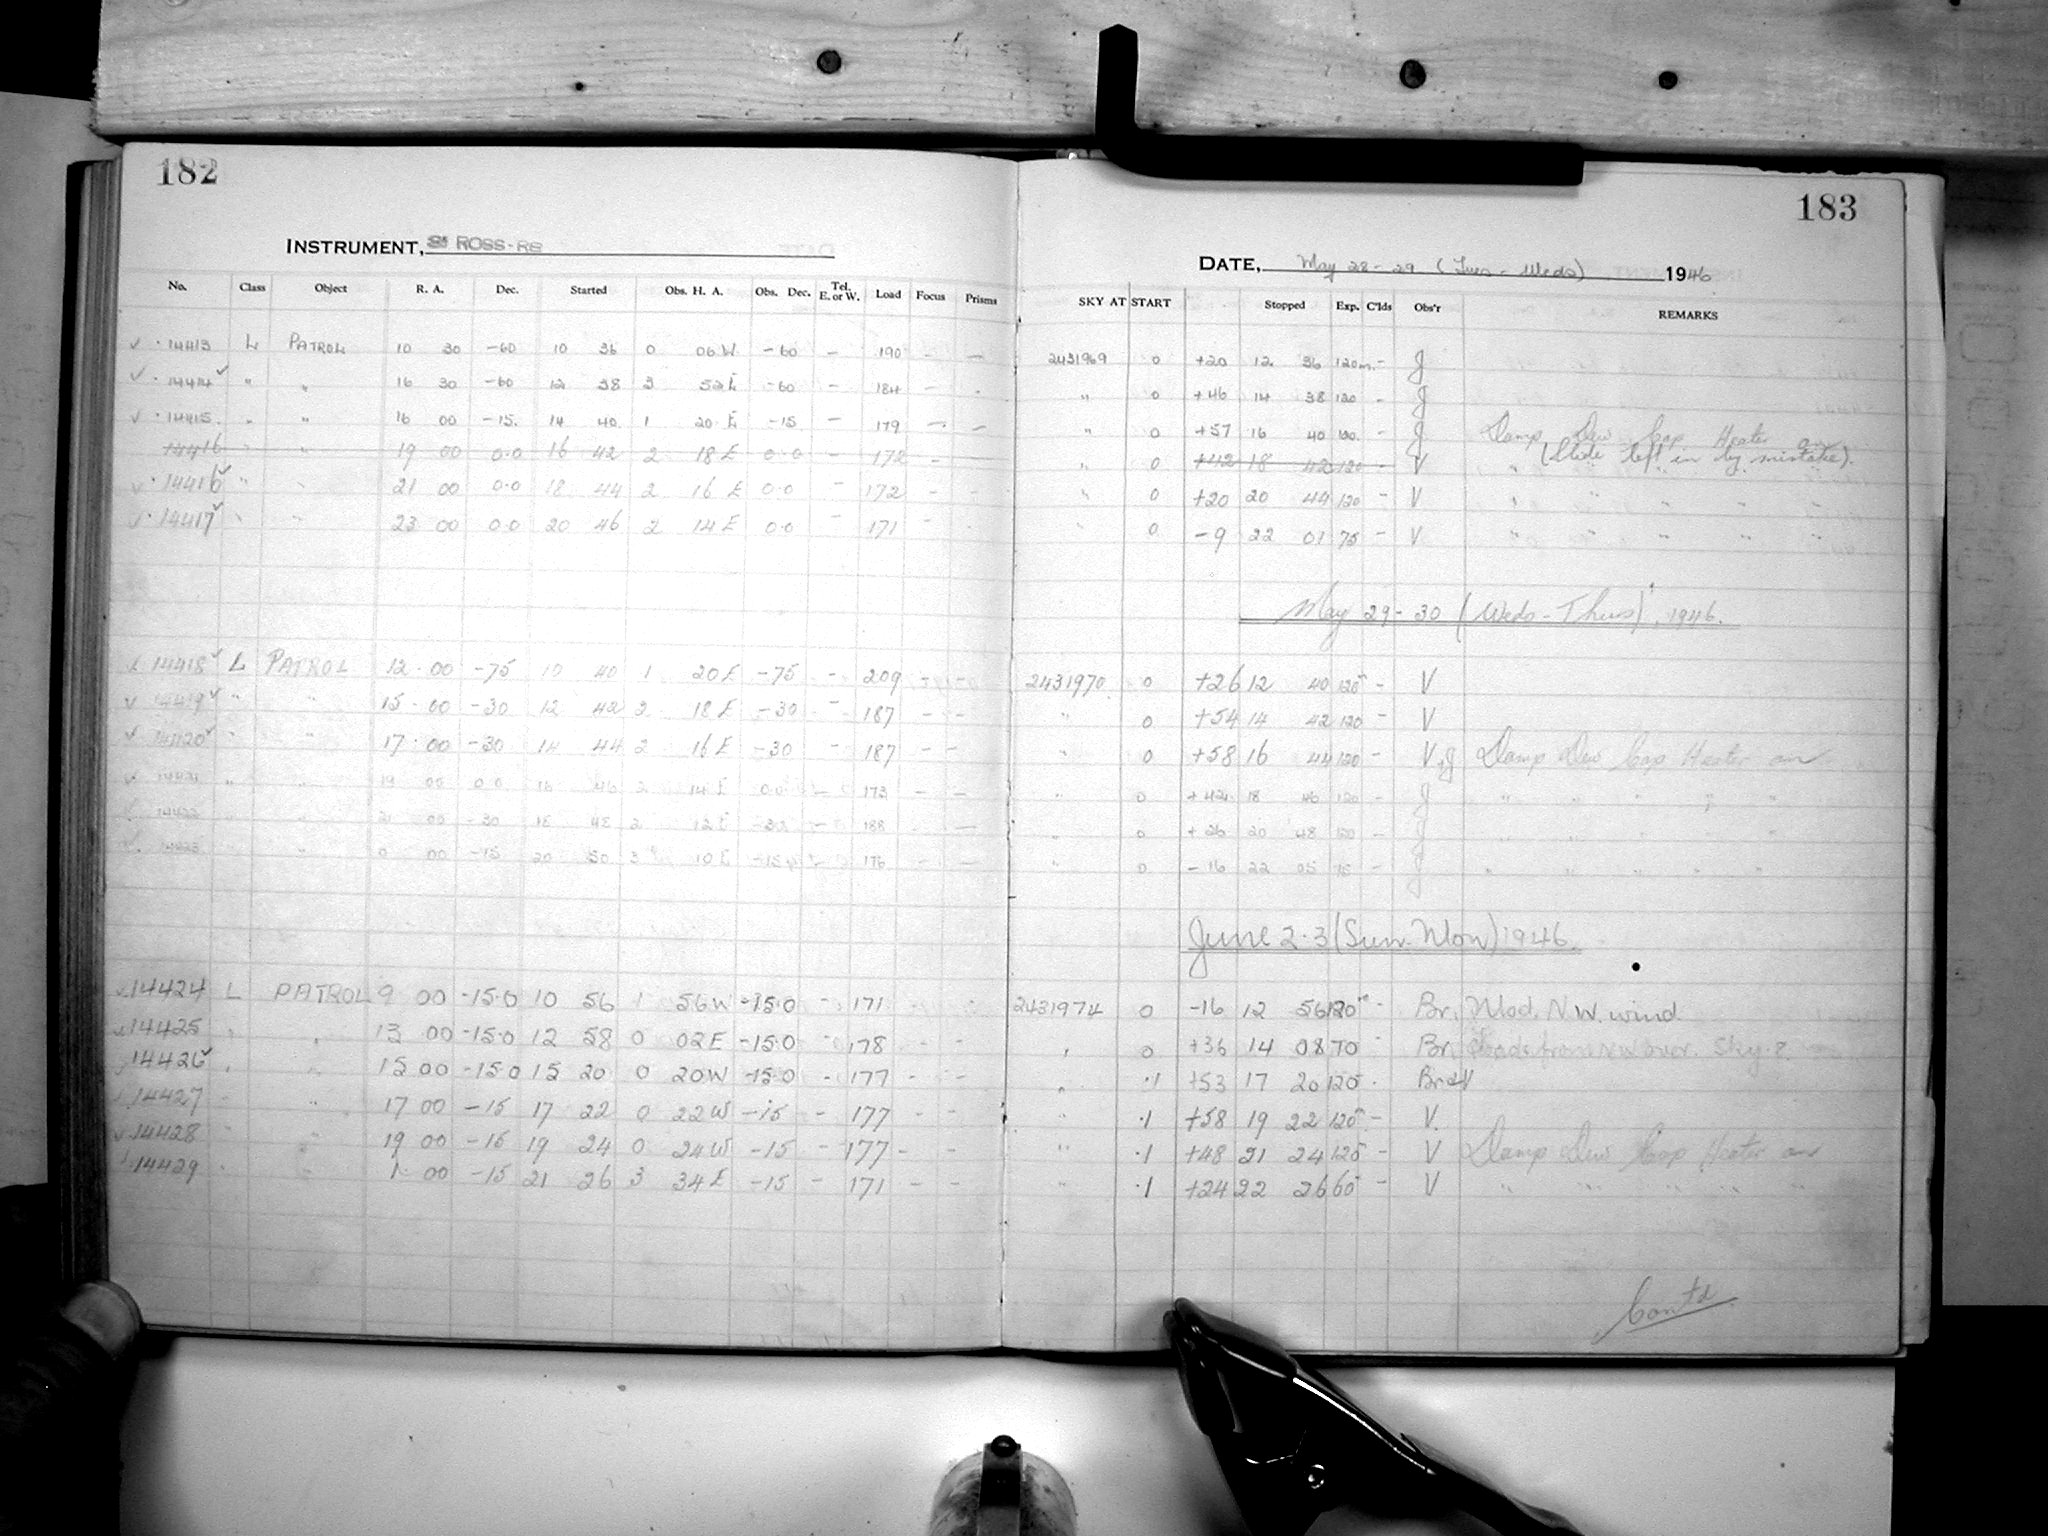 182
INSTRUMENT, 3" ROSS-RB
No. Class Object R. A. Dec. Started Obs. H. A. Obs. Dec. Tel. E. or W. Load Focus Prisms
14413 L PATROL 10 30 -60 10 36 0 06W -60 - 190 - -
14414 " " 16 30 -60 12 38 3 52E -60 - 184 - -
14415 " " 16 00 -15 14 40 1 20 E -15 - 179 - -
14416 " " 19 00 0.0 16 42 2 18 E 0.0 - 172 - -
14416 " " 21 00 0.0 18 44 2 16 E 0.0 - 172 - -
14417 " " 23 00 0.0 20 46 2 14 E 0.0 - 171 - -
14418 L PATROL 12.00 -75 10 40 1 20 E -75 - 209 - -
14419 " " 15.00 -30 12 42 2 18 E -30 - 187 - -
14420 " " 17.00 -30 14 44 2 16 E -30 - 187 - -
14421 " " 19 00 0.0 16 46 2 14 E 0.0 - 173 - -
14422 " " 21 00 -30 18 48 2 12 E -30 - 188 - -
14423 " " 0 00 -15 20 50 3 10 E -15 - 176 - -
14424 L PATROL 9 00 -15.0 10 56 1 56W -15.0 - 171 - -
14425 " " 13 00 -15.0 12 58 0 02E -15.0 - 178 - -
14426 " " 15 00 -15.0 15 20 0 20W -15.0 - 177 - -
14427 " " 17 00 -15 17 22 0 22W -15 - 177 - -
14428 " " 19 00 -15 19 24 0 24W -15 - 177 - -
14429 " 1 00 -15 21 26 3 34 E -15 - 171 - -
183
DATE, May 28-29 (Tues-Weds) 1946
SKY AT START Stopped Exp. C'lds Obs'r REMARKS
2431969 0 +20 12 36 120m. - J
" 0 +46 14 38 120 - J
" 0 +57 16 40 120. - J Damp Dew Cap Heater on
" 0 +42 18 42 120 - V (Slide left in by mistake).
" 0 +20 20 44 120 - V " " " " "
" 0 -9 22 01 75 - V " " " " "
May 29-30 (Weds-Thurs), 1946.
2431970 0 +26 12 40 120m - V
" 0 +54 14 42 120 - V
" 0 +58 16 44 120 - V & J Damp Dew Cap Heater on
" 0 +42 18 46 120 - J " " " " "
" 0 +26 20 48 120 - J " " " " "
" 0 -16 22 05 75 - J " " " " "
June 2-3 (Sun-Mon) 1946.
2431974 0 -16 12 56 120m - Br. Mod. N.W. wind
" 0 +36 14 08 70 - Br. from NW over. Sky
" .1 +53 17 20 120 - Br & V
" .1 +58 19 22 120m - V.
" .1 +48 21 24 120 - V Damp Dew Cap Heater on
" .1 +24 22 26 60 - V " " " " "
Contd